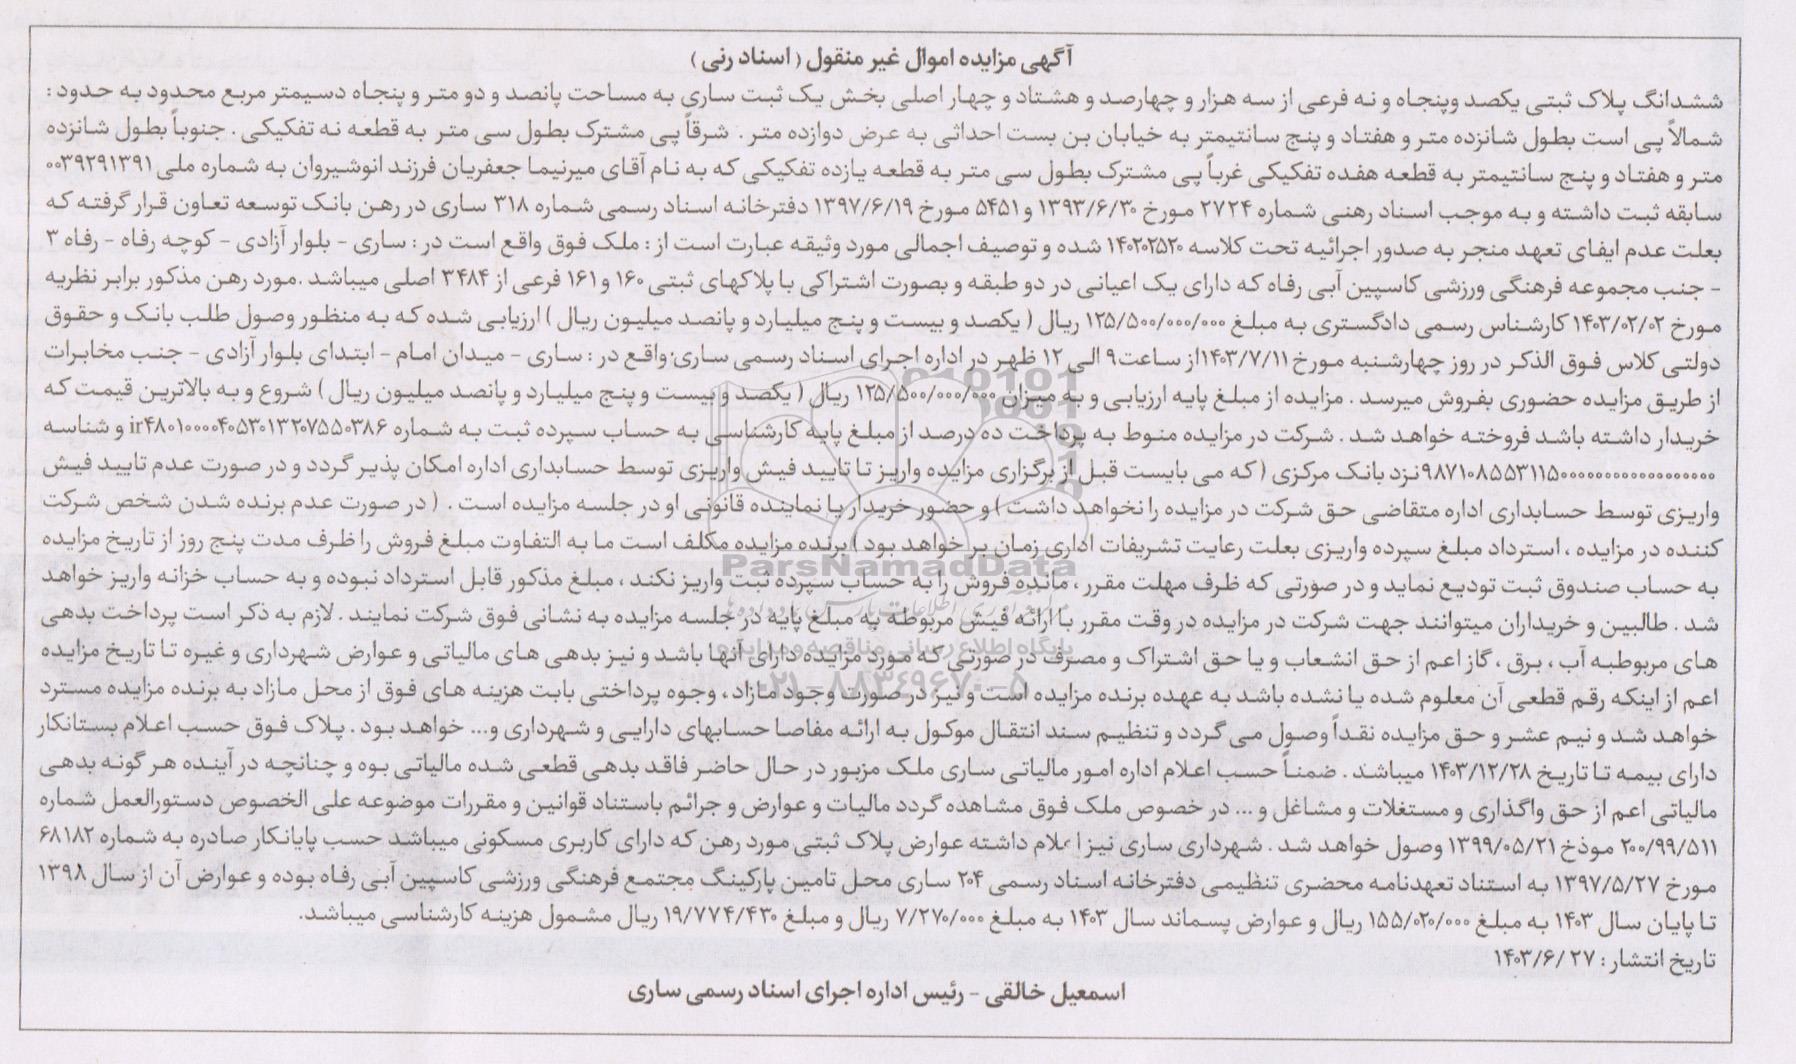 آگهی مزایده اموال غیر منقول ( اسناد رنی )
ششدانگ پلاک ثبتی یکصد وپنجاه و نه فرعی از سه هزار و چهارصد و هشتاد و چهار اصلی بخش یک ثبت ساری به مساحت پانصد و دو متر و پنجاه دسیمتر مربع محدود به حدود :
شمالاً پی است بطول شانزده متر و هفتاد و پنج سانتیمتر به خیابان بن بست احداثی به عرض دوازده متر . شرقاً پی مشترک بطول سی متر به قطعه نه تفکیکی . جنوباً بطول شانزده
متر و هفتاد و پنج سانتیمتر به قطعه هفده تفکیکی غرباً پی مشترک بطول سی متر به قطعه یازده تفکیکی که به نام آقای میرنیما جعفریان فرزند انوشیروان به شماره ملی ۰۰۳۹۲۹۱۳۹۱
سابقه ثبت داشته و به موجب اسناد رهنی شماره ۲۷۲۴ مورخ ۱۳۹۳/۶/۳۰ و ۵۴۵۱ مورخ ۱۳۹۷/۶/۱۹ دفترخانه اسناد رسمی شماره ۳۱۸ ساری در رهن بانک توسعه تعاون قرار گرفته که
بعلت عدم ایفای تعهد منجر به صدور اجرائیه تحت کلاسه ۱۴۰۲۰۲۵۲۰ شده و توصیف اجمالی مورد وثیقه عبارت است از : ملک فوق واقع است در : ساری - بلوار آزادی - کوچه رفاه - رفاه ۳
- جنب مجموعه فرهنگی ورزشی کاسپین آبی رفاه که دارای یک اعیانی در دو طبقه و بصورت اشتراکی با پلاکهای ثبتی ۱۶۰ و ۱۶۱ فرعی از ۳۴۸۴ اصلی میباشد .مورد رهن مذکور برابر نظریه
مورخ ۱۴۰۳/۰۲/۰۲ کارشناس رسمی دادگستری به مبلغ ۱۲۵/۵۰۰/۰۰۰/۰۰۰ ریال ( یکصد و بیست و پنج میلیارد و پانصد میلیون ریال ) ارزیابی شده که به منظور وصول طلب بانک و حقوق
دولتی کلاس فوق الذکر در روز چهارشنبه مورخ ۱۴۰۳/۷/۱۱از ساعت۹ الی ۱۲ ظهر در اداره اجرای اسناد رسمی ساری.واقع در : ساری - میدان امام - ابتدای بلوار آزادی - جنب مخابرات
از طریق مزایده حضوری بفروش میرسد . مزایده از مبلغ پایه ارزیابی و به میزان ۱۲۵/۵۰۰/۰۰۰/۰۰۰ ریال ( یکصد و بیست و پنج میلیارد و پانصد میلیون ریال ) شروع و به بالاترین قیمت که
خریدار داشته باشد فروخته خواهد شد . شرکت در مزایده منوط به پرداخت ده درصد از مبلغ پایه کارشناسی به حساب سپرده ثبت به شماره ir۴۸۰۱۰۰۰۰۴۰۵۳۰۱۳۲۰۷۵۵۰۳۸۶ و شناسه
نزد بانک مرکزی ( که می بایست قبل از برگزاری مزایده واریز تا تایید فیش واریزی توسط حسابداری اداره امکان پذیر گردد و در صورت عدم تایید فیش
واریزی توسط حسابداری اداره متقاضی حق شرکت در مزایده را نخواهد داشت ) و حضور خریدار یا نماینده قانونی او در جلسه مزایده است . ( در صورت عدم برنده شدن شخص شرکت
کننده در مزایده ، استرداد مبلغ سپرده واریزی بعلت رعایت تشریفات اداری زمان بر خواهد بود ) برنده مزایده مکلف است ما به التفاوت مبلغ فروش را ظرف مدت پنج روز از تاریخ مزایده
به حساب صندوق ثبت تودیع نماید و در صورتی که ظرف مهلت مقرر ، مانده فروش را به حساب سپرده ثبت واریز نکند ، مبلغ مذکور قابل استرداد نبوده و به حساب خزانه واریز خواهد
شد . طالبین و خریداران میتوانند جهت شرکت در مزایده در وقت مقرر با ارائه فیش مربوطه به مبلغ پایه در جلسه مزایده به نشانی فوق شرکت نمایند . لازم به ذکر است پرداخت بدهی
های مربوطبه آب ، برق ، گاز اعم از حق انشعاب و یا حق اشتراک و مصرف در صورتی که مورد مزایده دارای آنها باشد و نیز بدهی های مالیاتی و عوارض شهرداری و غیره تا تاریخ مزایده
اعم از اینکه رقم قطعی آن معلوم شده یا نشده باشد به عهده برنده مزایده است و نیز در صورت وجود مازاد ، وجوه پرداختی بابت هزینه های فوق از محل مازاد به برنده مزایده مسترد
خواهد شد و نیم عشر و حق مزایده نقداً وصول می گردد و تنظیم سند انتقال موکول به ارائه مفاصا حسابهای دارایی و شهرداری و... خواهد بود . پلاک فوق حسب اعلام بستانکار
دارای بیمه تا تاریخ ۱۴۰۳/۱۲/۲۸ میباشد . ضمناً حسب اعلام اداره امور مالیاتی ساری ملک مزبور در حال حاضر فاقد بدهی قطعی شده مالیاتی بوه و چنانچه در آینده هر گونه بدهی
مالیاتی اعم از حق واگذاری و مستغلات و مشاغل و ... در خصوص ملک فوق مشاهده گردد مالیات و عوارض و جرائم باستناد قوانین و مقررات موضوعه علی الخصوص دستورالعمل شماره
۲۰۰/۹۹/۵۱۱ موذخ ۱۳۹۹/۰۵/۲۱ وصول خواهد شد . شهرداری ساری نیز اعلام داشته عوارض پلاک ثبتی مورد رهن که دارای کاربری مسکونی میباشد حسب پایانکار صادره به شماره ۶۸۱۸۲
مورخ ۱۳۹۷/۵/۲۷ به استناد تعهدنامه محضری تنظیمی دفترخانه اسناد رسمی ۲۰۴ ساری محل تامین پارکینگ مجتمع فرهنگی ورزشی کاسپین آبی رفاه بوده و عوارض آن از سال ۱۳۹۸
تا پایان سال ۱۴۰۳ به مبلغ ۱۵۵/۰۲۰/۰۰۰ ریال و عوارض پسماند سال ۱۴۰۳ به مبلغ ۷/۲۷۰/۰۰۰ ریال و مبلغ ۱۹/۷۷۴/۴۳۰ ریال مشمول هزینه کارشناسی میباشد.
تاریخ انتشار : ۲۷ /۱۴۰۳/۶
اسمعیل خالقی - رئیس اداره اجرای اسناد رسمی ساری
ParsNamadData
پایگاه اطلاع رسانی مناقصه و مزایده
۰۲۱-۸۸۳۴۹۶۷۰-۵